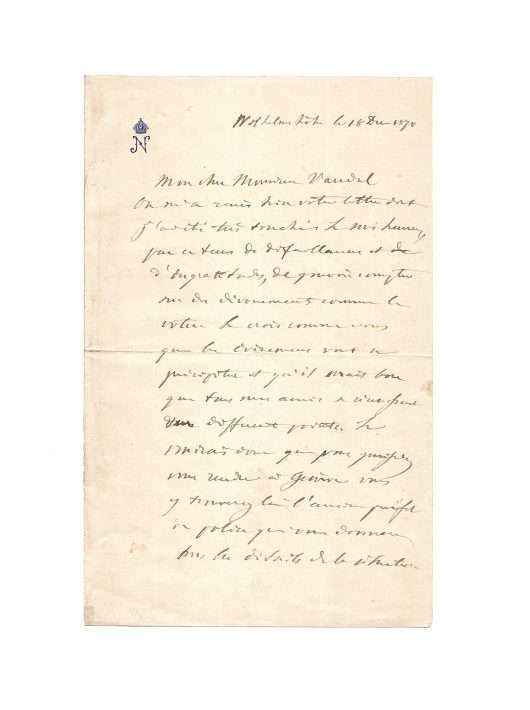 N
Wilhelmshöhe le 18 Dec 1870
Mon cher Monsieur Vandal
On m'a remis hier votre lettre dont
j'ai été très touché. Je suis heureux,
par ce temps de défaillances et de
d'ingratitudes, de pouvoir compter
sur des dévouements comme le
votre. Je crois comme vous
que les évènements vont se
précipiter et qu'il serait bon
que tous mes amis se
différents points. Je
voudrais donc que vous puissiez
vous rendre à Genève vous
y trouverez là l'ancien préfet
de police qui vous donnera
tous les détails de la situation